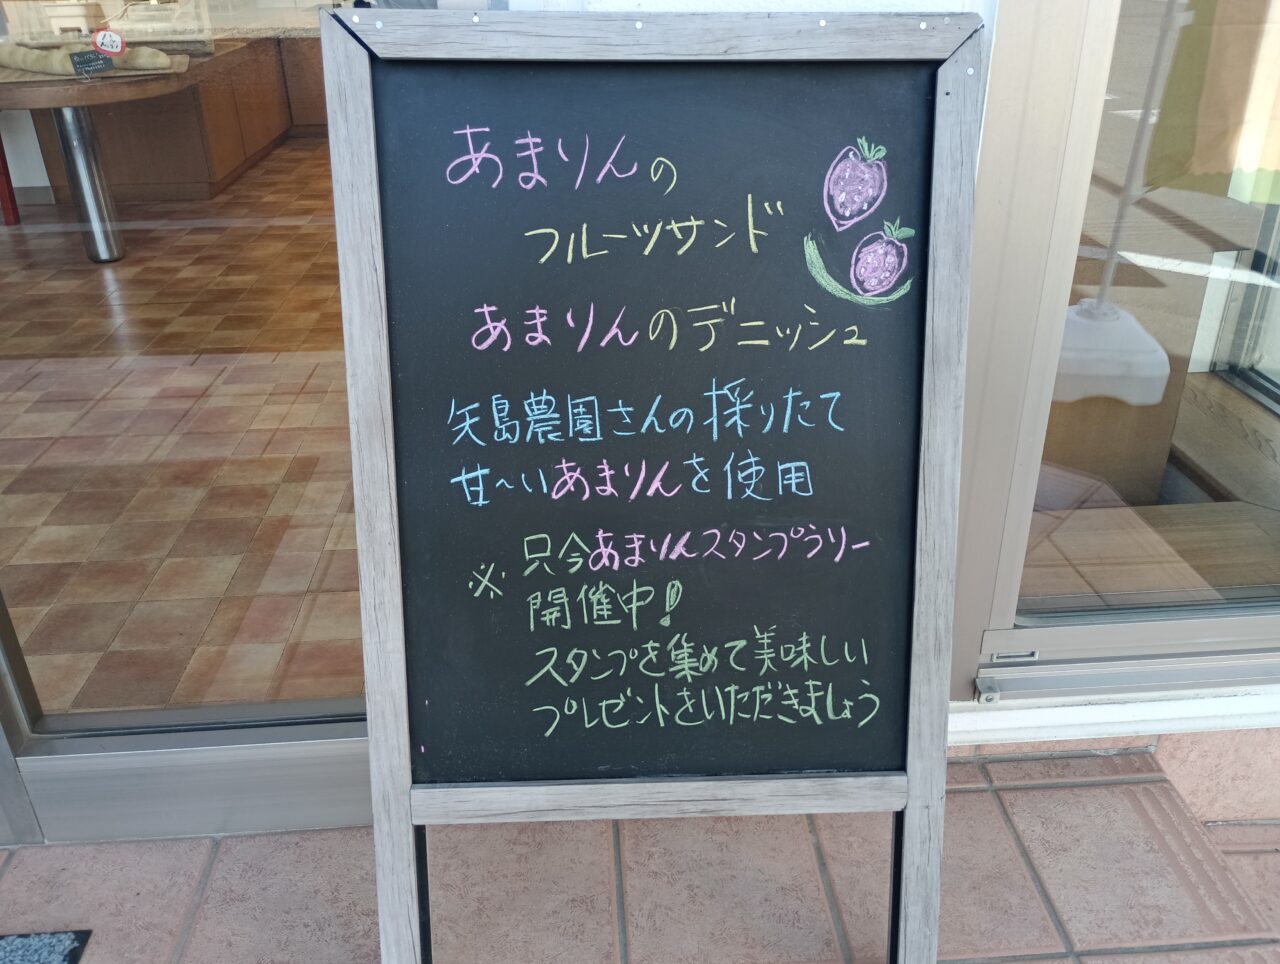 あまりんの
フルーツサンド
あまりんのデニッシュ
矢島農園さんの採りたて
甘~いあまりんを使用
※只今あまりんスタンプラリー
開催中!
スタンプを集めて美味しい
プレゼントをいただきましょう